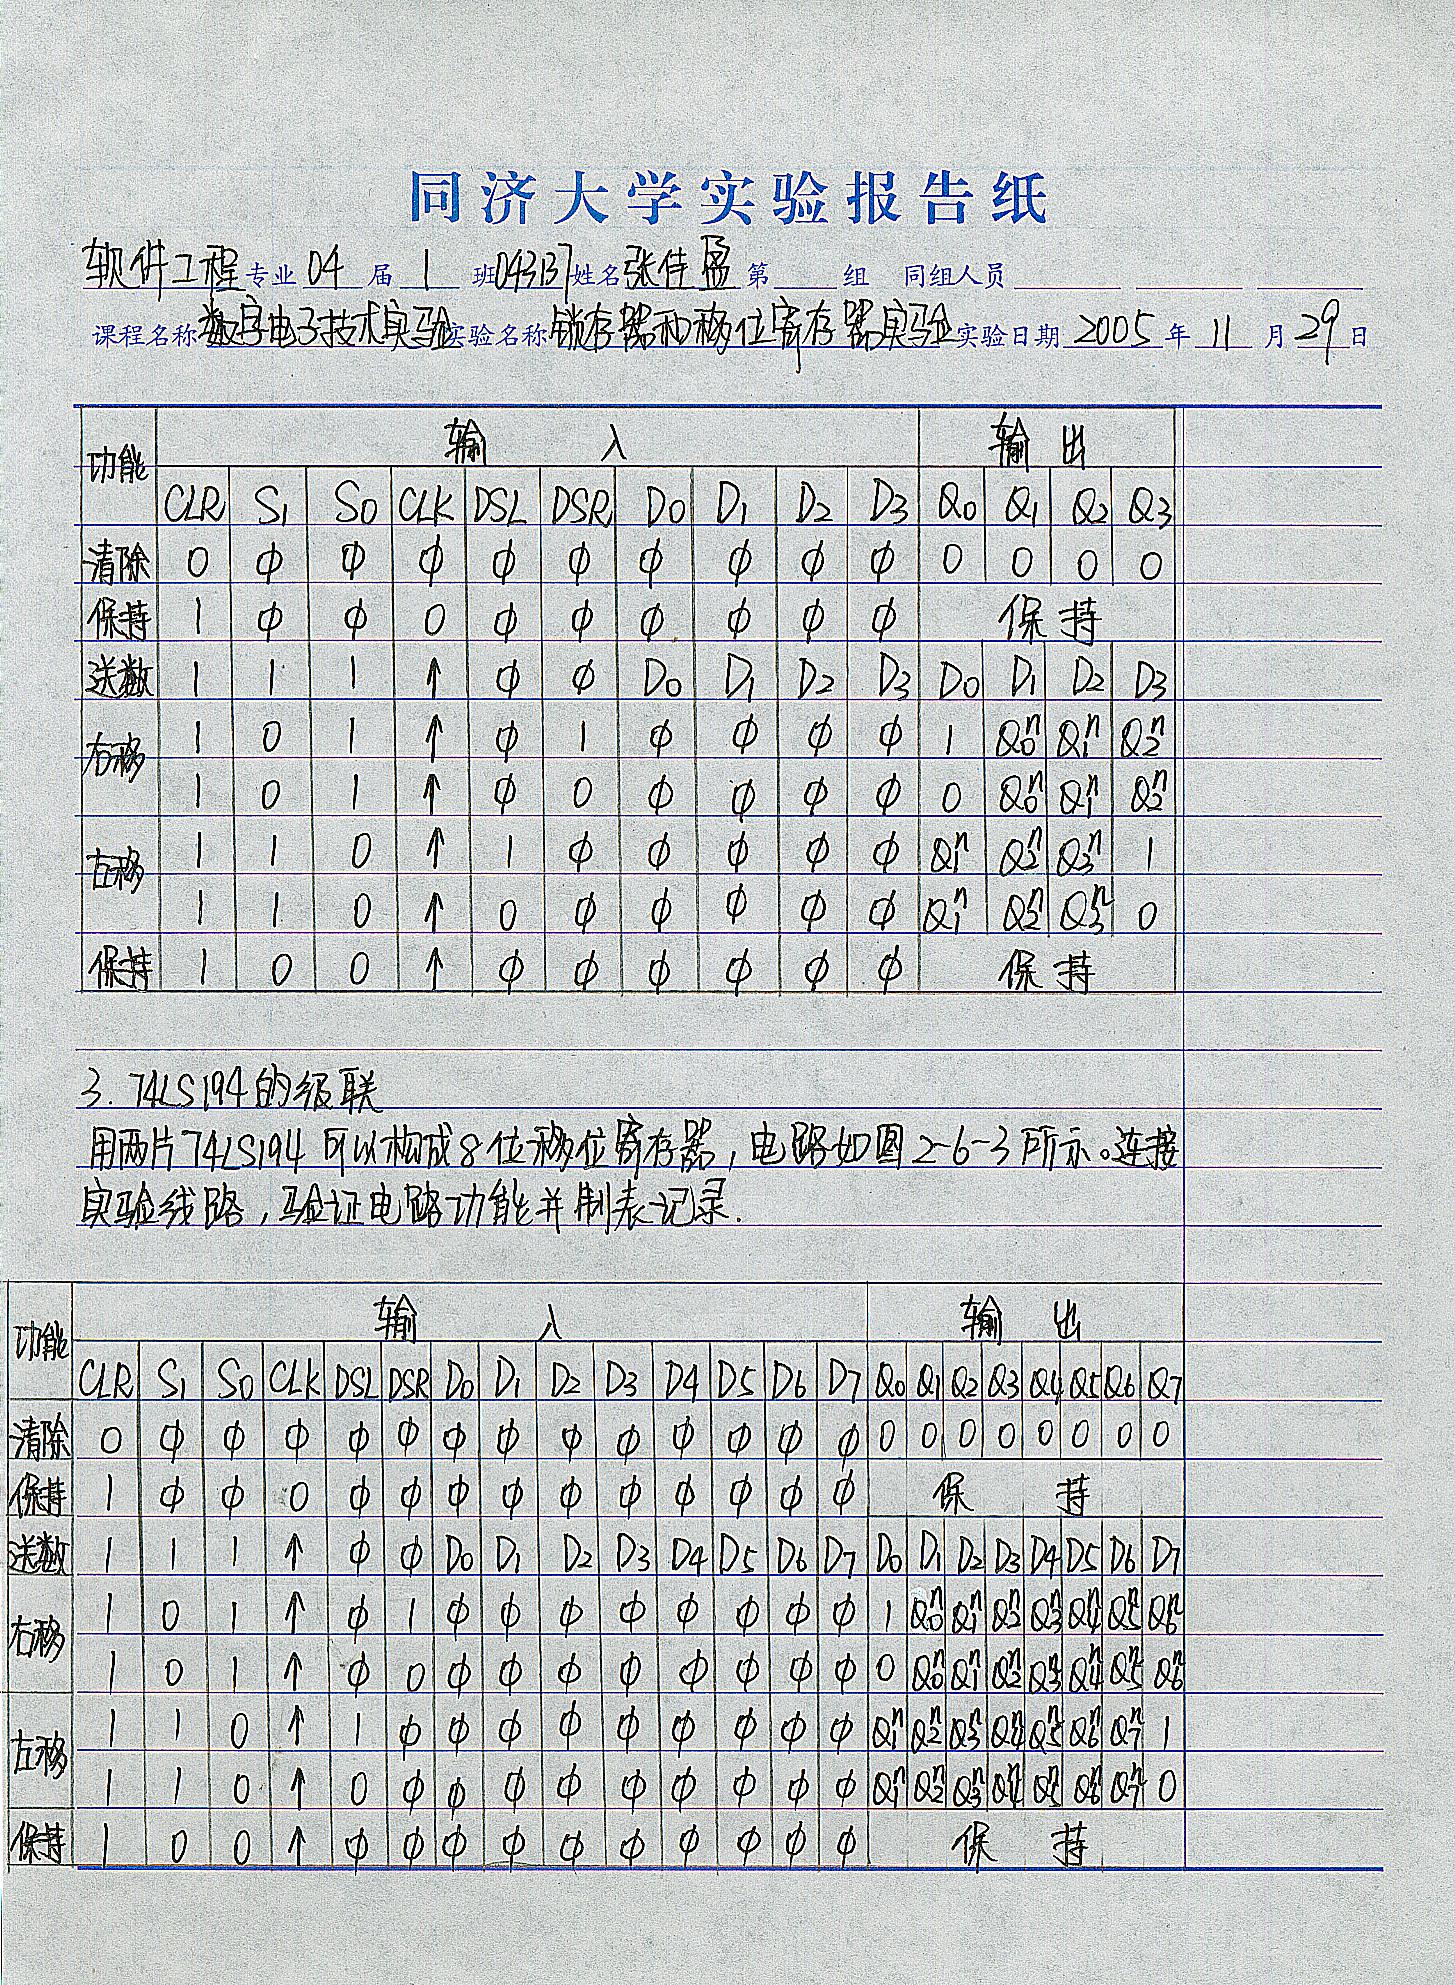 同济大学实验报告纸
软件工程专业 04 届 1 班 043137 姓名 张佳盈 第 组 同组人员
课程名称 数字电子技术实验 实验名称 锁存器和移位寄存器实验 实验日期 2005 年 11 月 29 日
功能 输 入 输 出
CLR S1 S0 CLK DSL DSR D0 D1 D2 D3 Q0 Q1 Q2 Q3
清除 0 ϕ ϕ ϕ ϕ ϕ ϕ ϕ ϕ ϕ 0 0 0 0
保持 1 ϕ ϕ 0 ϕ ϕ ϕ ϕ ϕ ϕ 保 持
送数 1 1 1 ↑ ϕ ϕ D0 D1 D2 D3 D0 D1 D2 D3
右移 1 0 1 ↑ ϕ 1 ϕ ϕ ϕ ϕ 1 Q0ⁿ Q1ⁿ Q2ⁿ
1 0 1 ↑ ϕ 0 ϕ ϕ ϕ ϕ 0 Q0ⁿ Q1ⁿ Q2ⁿ
左移 1 1 0 ↑ 1 ϕ ϕ ϕ ϕ ϕ Q1ⁿ Q2ⁿ Q3ⁿ 1
1 1 0 ↑ 0 ϕ ϕ ϕ ϕ ϕ Q1ⁿ Q2ⁿ Q3ⁿ 0
保持 1 0 0 ↑ ϕ ϕ ϕ ϕ ϕ ϕ 保 持
3. 74LS194的级联
用两片74LS194可以构成8位移位寄存器，电路如图2-6-3所示。连接
实验线路，验证电路功能并制表记录.
功能 输 入 输 出
CLR S1 S0 CLK DSL DSR D0 D1 D2 D3 D4 D5 D6 D7 Q0 Q1 Q2 Q3 Q4 Q5 Q6 Q7
清除 0 ϕ ϕ ϕ ϕ ϕ ϕ ϕ ϕ ϕ ϕ ϕ ϕ ϕ 0 0 0 0 0 0 0 0
保持 1 ϕ ϕ 0 ϕ ϕ ϕ ϕ ϕ ϕ ϕ ϕ ϕ ϕ 保 持
送数 1 1 1 ↑ ϕ ϕ D0 D1 D2 D3 D4 D5 D6 D7 D0 D1 D2 D3 D4 D5 D6 D7
右移 1 0 1 ↑ ϕ 1 ϕ ϕ ϕ ϕ ϕ ϕ ϕ ϕ 1 Q0ⁿ Q1ⁿ Q2ⁿ Q3ⁿ Q4ⁿ Q5ⁿ Q6ⁿ
1 0 1 ↑ ϕ 0 ϕ ϕ ϕ ϕ ϕ ϕ ϕ ϕ 0 Q0ⁿ Q1ⁿ Q2ⁿ Q3ⁿ Q4ⁿ Q5ⁿ Q6ⁿ
左移 1 1 0 ↑ 1 ϕ ϕ ϕ ϕ ϕ ϕ ϕ ϕ ϕ Q1ⁿ Q2ⁿ Q3ⁿ Q4ⁿ Q5ⁿ Q6ⁿ Q7ⁿ 1
1 1 0 ↑ 0 ϕ ϕ ϕ ϕ ϕ ϕ ϕ ϕ ϕ Q1ⁿ Q2ⁿ Q3ⁿ Q4ⁿ Q5ⁿ Q6ⁿ Q7ⁿ 0
保持 1 0 0 ↑ ϕ ϕ ϕ ϕ ϕ ϕ ϕ ϕ ϕ ϕ 保 持